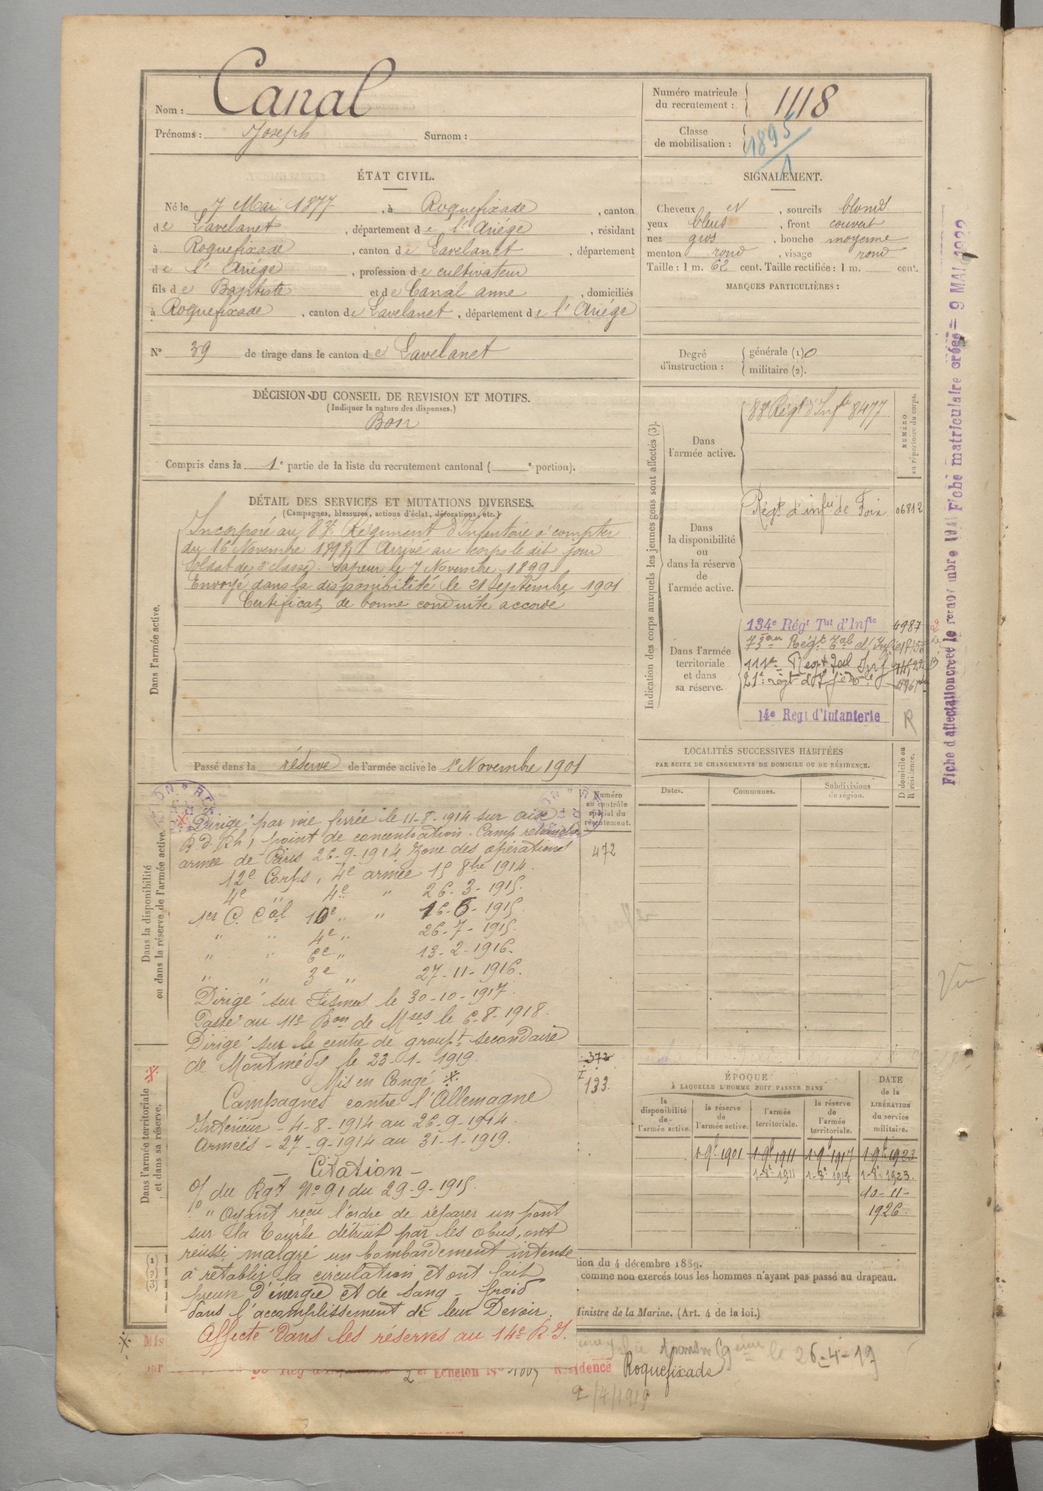 Nom : Canal
Prénoms : Joseph Surnom :
Numéro matricule du recrutement : 1118
Classe de mobilisation : 1895/1
ÉTAT CIVIL.
Né le 7 Mai 1877, à Roquefixade, canton
de Lavelanet, département de l'Ariège, résidant
à Roquefixade, canton de Lavelanet, département
de l'Ariège, profession de cultivateur
fils de Baptiste et de Canal anne, domiciliés
à Roquefixade, canton de Lavelanet, département de l'Ariège
N° 39 de tirage dans le canton de Lavelanet
SIGNALEMENT.
Cheveux N, sourcils blonds
yeux bleus, front couvert
nez gros, bouche moyenne
menton rond, visage rond
Taille : 1 m. 62 cent. Taille rectifiée : 1 m. cent.
MARQUES PARTICULIÈRES :
Degré d'instruction : générale (1) 0
militaire (2).
DÉCISION DU CONSEIL DE REVISION ET MOTIFS.
(Indiquer la nature des dispenses.)
Bon
Compris dans la 1e partie de la liste du recrutement cantonal ( e portion).
DÉTAIL DES SERVICES ET MUTATIONS DIVERSES.
(Campagnes, blessures, actions d'éclat, décorations, etc.)
Dans l'armée active.
Incorporé au Régiment d'Infanterie à compter
du 16 Novembre Arrivé au corps le dit jour
Soldat de 2e classe. Sapeur le 7 Novembre 1899
Envoyé dans la disponibilité le 21 Septembre 1901
Certificat de bonne conduite accordé
Passé dans la réserve de l'armée active le 1er Novembre 1901
Indication des corps auxquels les jeunes gens sont affectés (3).
NUMÉRO au répertoire du corps.
Dans l'armée active.
Régt d'Infie 8477
Dans la disponibilité ou dans la réserve de l'armée active.
Régt d'infie de Foix 06812
Dans l'armée territoriale et dans sa réserve.
134e Régt Tal d'Infie 4987
Régt Tal d'Inf
111e Régt Tal Inf
14e Régt d'Infanterie R
LOCALITÉS SUCCESSIVES HABITÉES
PAR SUITE DE CHANGEMENTS DE DOMICILE OU DE RÉSIDENCE.
Dates. Communes. Subdivisions de région. D domicile ou R résidence.
Fiche matriculaire créée = 9 MAI
Fiche d'affectation créée le
Dans la disponibilité ou dans la réserve de l'armée active.
Numéro au contrôle spécial du recrutement.
472
Dirigé par voie ferrée le 11-8-1914 sur
point de concentration. Camp retranché
armée de Paris 26-9-1914 Zone des opérations
12e Corps, 4e armée 15 8bre 1914.
4e " 4e " 26-3-1915.
1er C. Cal 10e " " 16-6-1915.
" " 4e " 26-7-1915.
" " 6e " 13-2-1916.
" " 3e " 27-11-1916.
Dirigé sur Fismes le 30-10-1917.
Passé au 11e Bon de Mses le 6-8-1918.
Dirigé sur le centre de groupt secondaire
de Montmédy le 23-1-1919.
Mis en Congé
Campagnes contre l'Allemagne
Intérieur - 4-8-1914 au 26-9-1914.
Armées - 27-9-1914 au 31-1-1919.
- Citation -
O/ du Rgt N° 91 du 29-9-1915.
" Ayant reçu l'ordre de réparer un pont
sur la Tourbe détruit par les obus, ont
réussi malgré un bombardement intense
à rétablir la circulation et ont fait
preuve d'énergie et de sang-froid
dans l'accomplissement de leur Devoir.
Affecté dans les réserves au 14e R.I.
Dans l'armée territoriale et dans sa réserve.
372
133
ÉPOQUE
À LAQUELLE L'HOMME DOIT PASSER DANS
la disponibilité de l'armée active. la réserve de l'armée active. l'armée territoriale. la réserve de l'armée territoriale. DATE de la LIBÉRATION du service militaire.
1-9bre 1901 1-9bre 1911 1-9bre 1917 1-9bre 1923
1-8e-1911 1-8e-1917 1-8e-1923
10-11-1926
(1)
(2)
(3)
tion du 4 décembre 1889.
comme non exercés tous les hommes n'ayant pas passé au drapeau.
Ministre de la Marine. (Art. 4 de la loi.)
Mis
le 26-4-19
Echelon N° Résidence Roquefixade
2/4/1919
Vu